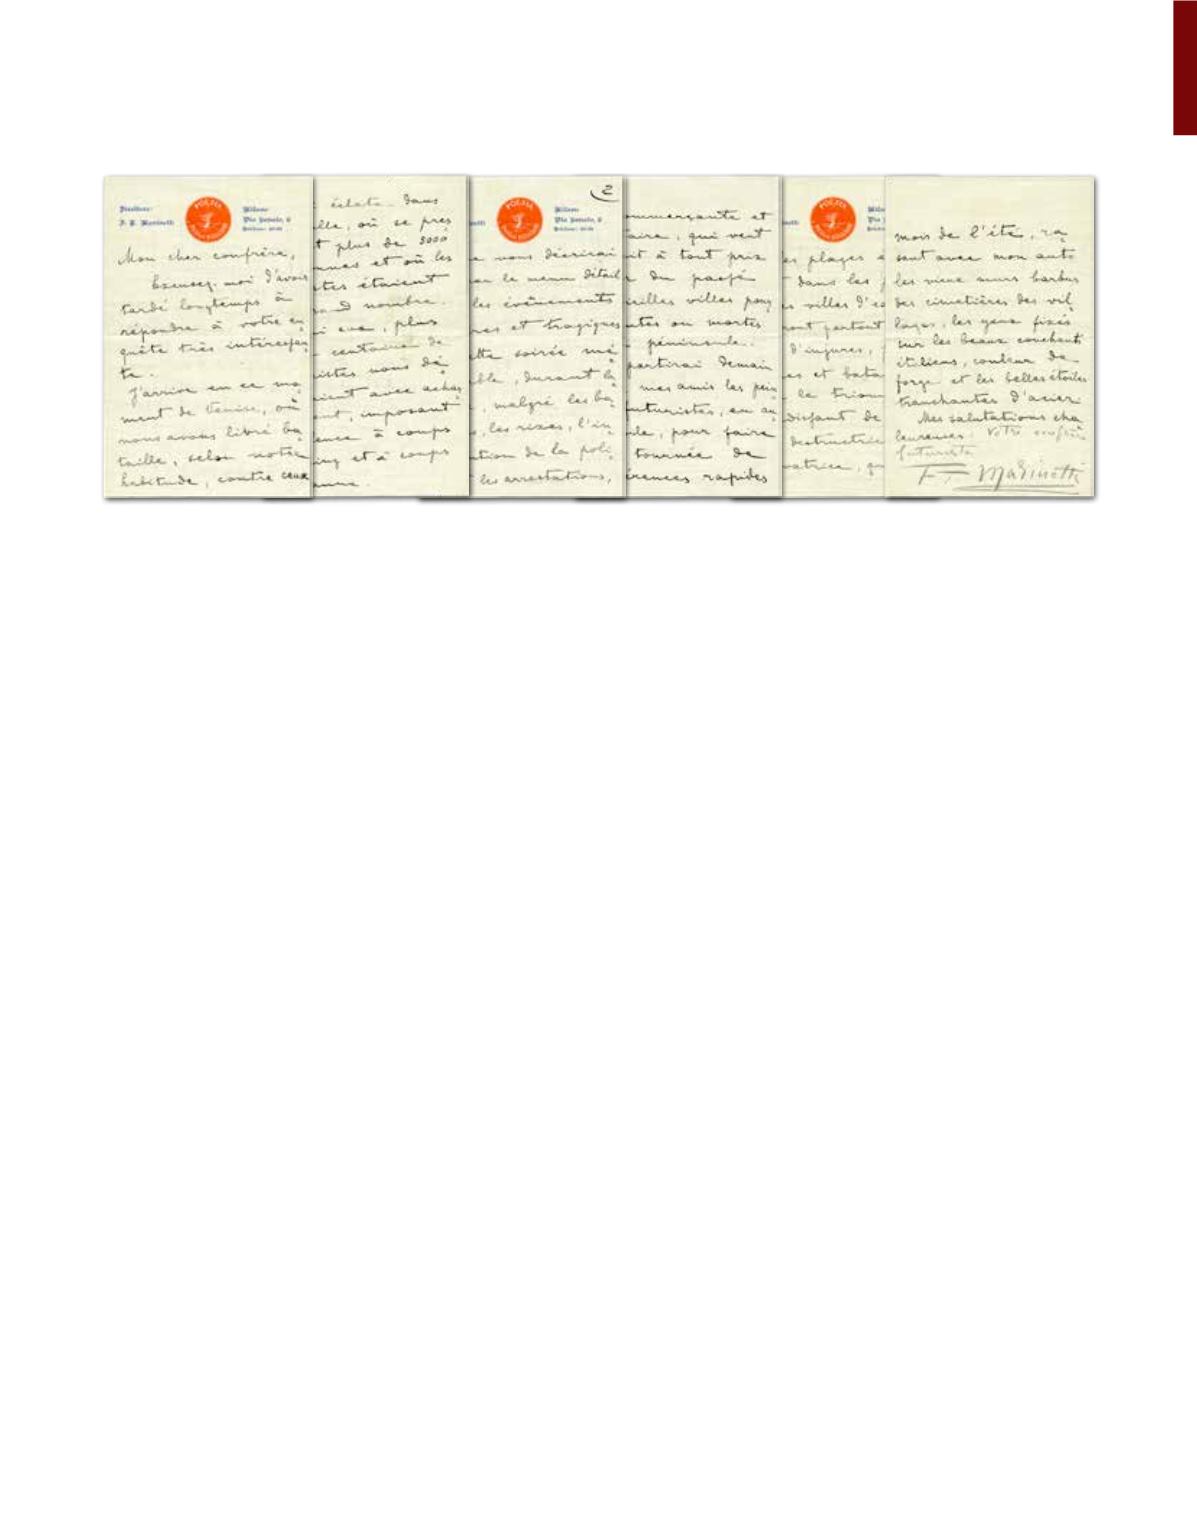 Direttore:
F. T. Marinetti
POESIA
Milano
Via Senato, 2
Mon cher confrère,
Excusez-moi d'avoir
tardé longtemps à
répondre à votre en
quête très intéressan
te.
J'arrive en ce mo
ment de Venise, où
nous avons livré ba
taille, selon notre
habitude, contre ceux
éclate. Dans
lle, où se pres
t plus de 3000
nnes et où les
tes étaient
nd nombre.
i eux, plus
centaine de
istes nous dé
aient avec achar
nt, imposant
ence à coups
ing et à coups
anne.
2
POESIA
Milano
Via Senato, 2
e vous décrirai
par le menu détail
les événements
res et tragiques
tte soirée mé
ble, durant la
, malgré les ba
s, les rixes, l'in
tion de la poli
les arrestations,
ommerçante et
aire, qui veut
it à tout prix
r du passé
ieilles villes pour
ntes ou mortes
péninsule.
partirai demain
mes amis les pein
futuristes, en au
ile, pour faire
tournée de
érences rapides
POESIA
es plages
dans les
s villes d'ea
ront partout
d'injures,
es et bata
le triom
disfant de
destructrice
vatrice, qu
mois de l'été, ra
sant avec mon auto
les vieux murs barbus
des cimetières des vil
lages, les yeux fixés
sur les beaux couchants
italiens, couleur de
forge et les belles étoiles
tranchantes d'acier.
Mes salutations cha
leureuses. Votre confrère
futuriste
F. T. Marinetti